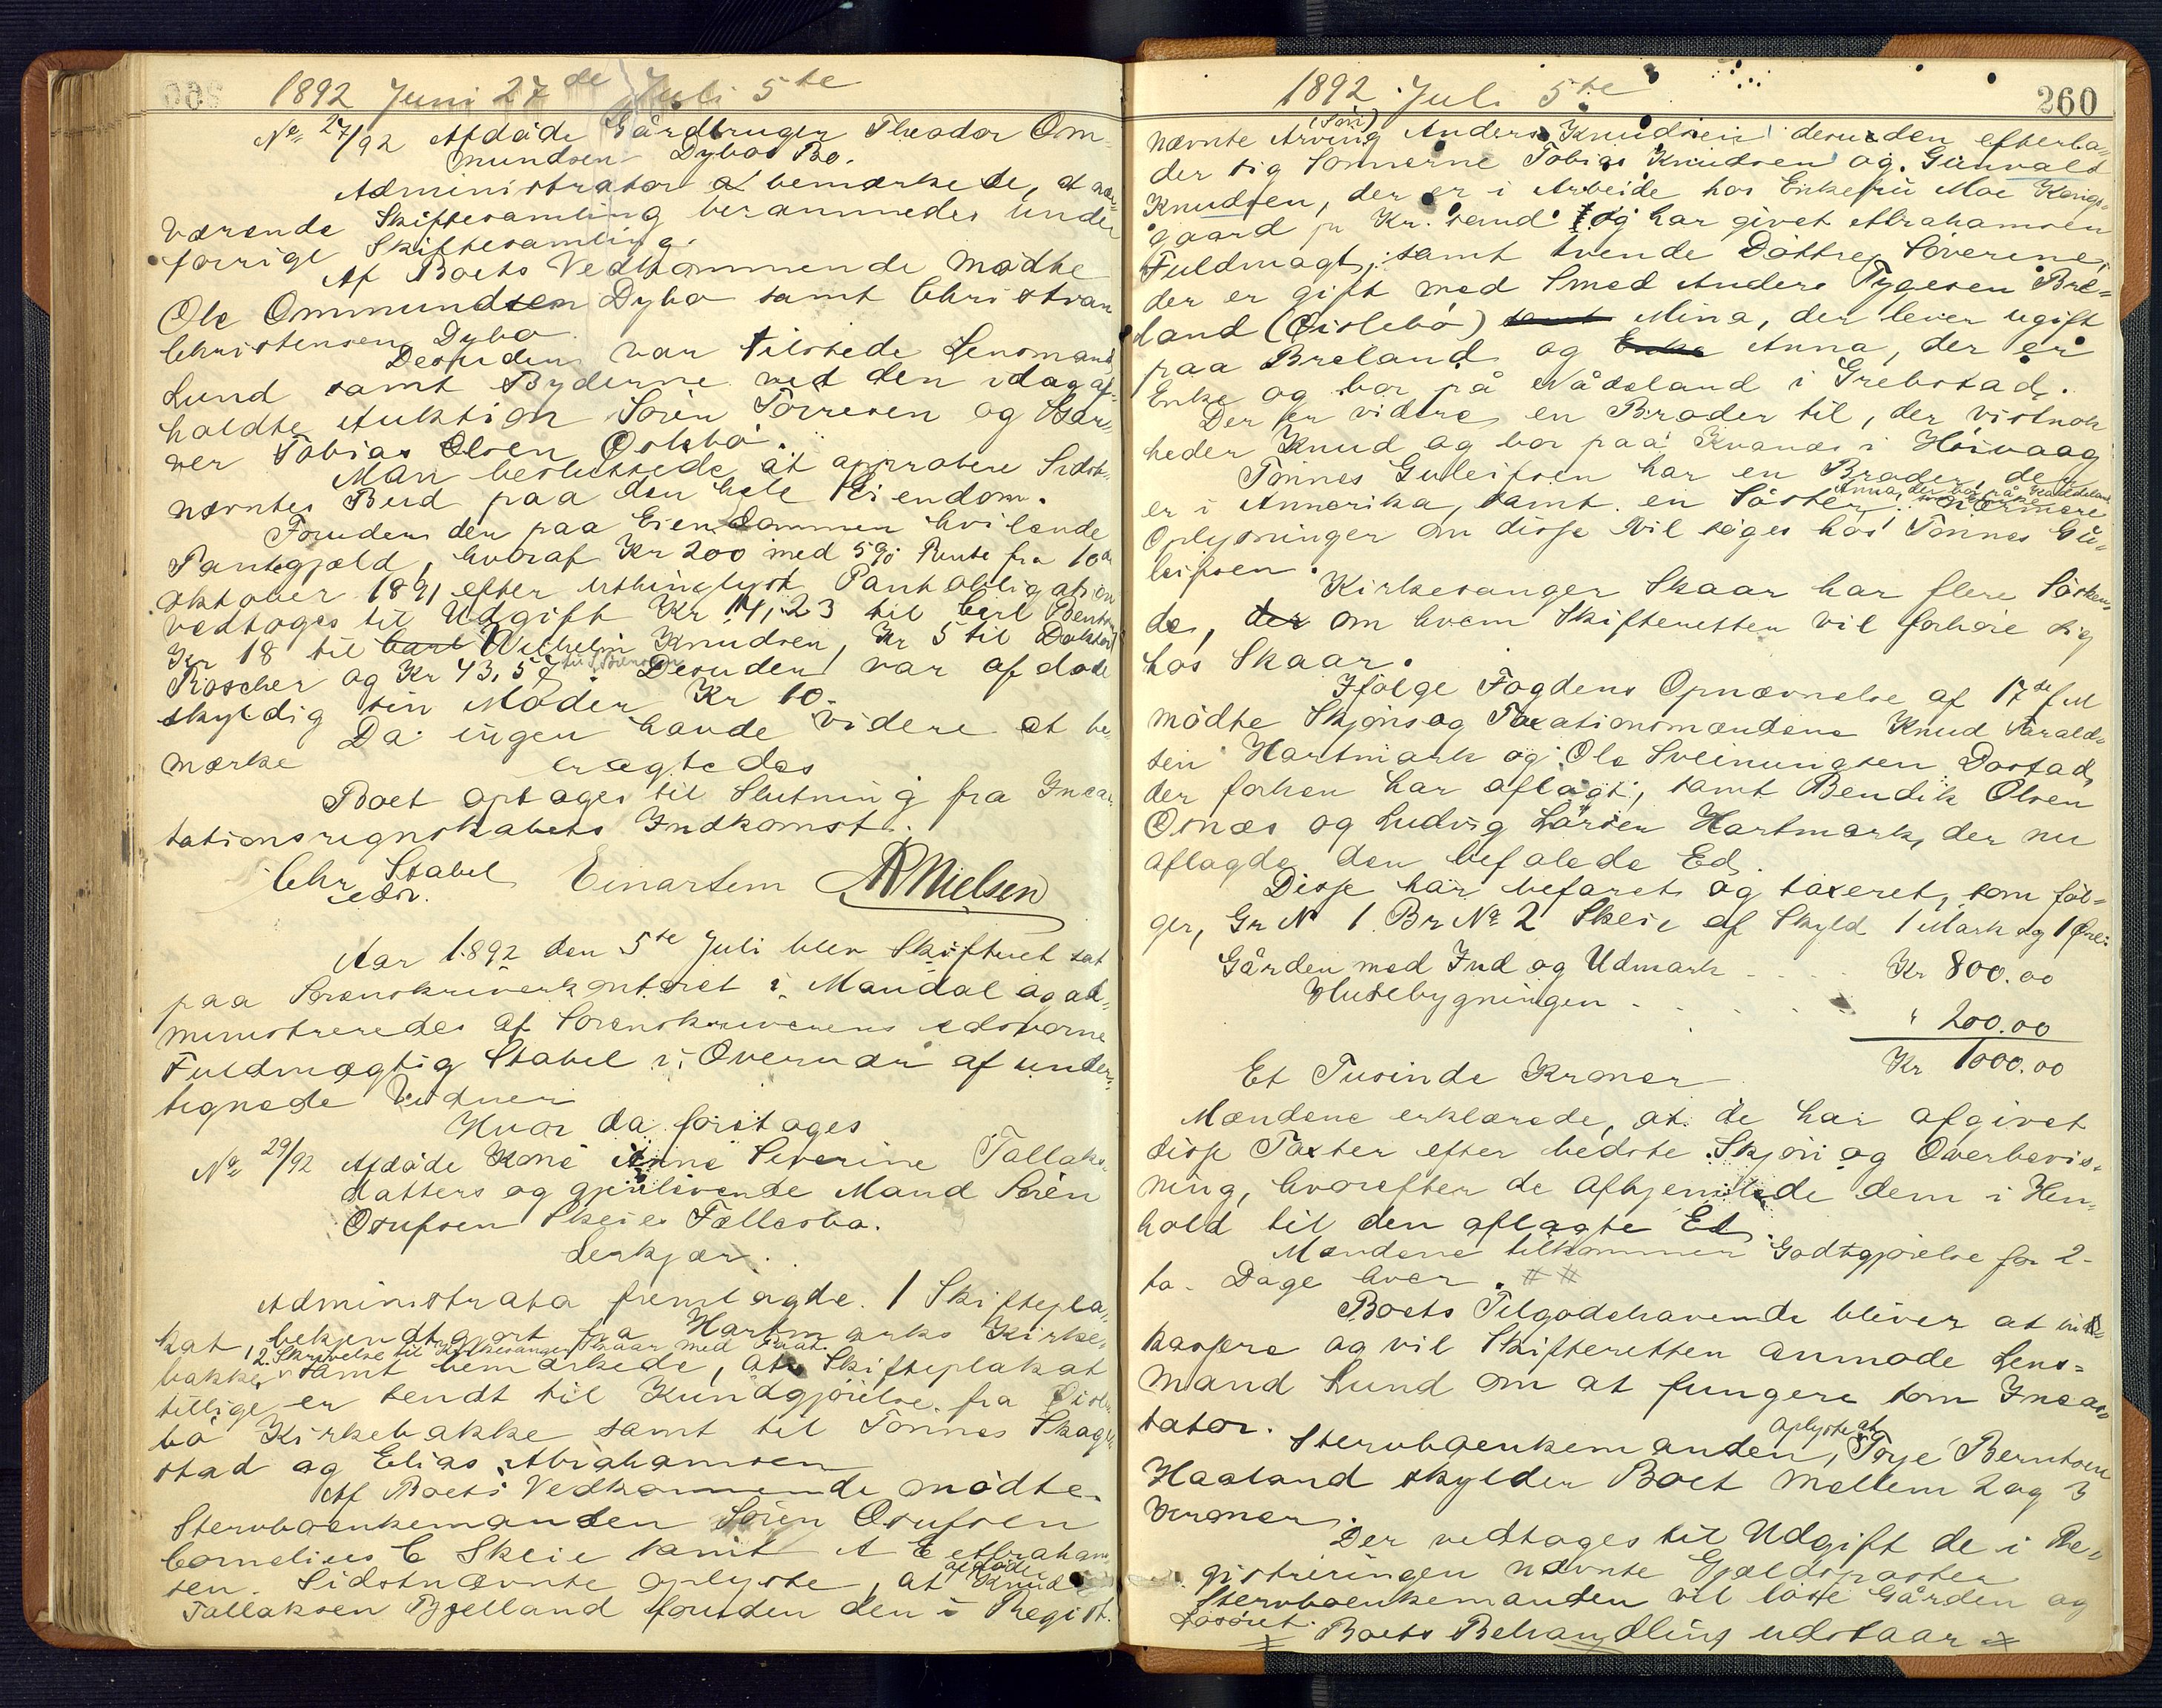 1892 Juni 27de Juli 5te
No 27/92 Afdöde Gårdbruger Theodor Om-
mundsen Dybos Bo.
Administrator bemærkede, at nær-
værende Skiftesamling berammedes under
forrige Skiftesamling.
Af Boets Vedkommende mødte
Ole Ommundsen Dybo samt Christian
Christensen Dybo
Desuden var tilstede Lensmand
Lund samt Byderne ved den idag af-
holdte Auktion Sören Törresen og Gar-
ver Tobias Olsen Oslebö.
Man besluttede at approbere Sidst-
nævntes Bud paa den hele Eiendom.
Foruden den paa Eiendommen hvilende
Pantegjæld, hvoraf Kr 200 med 5% Rente fra 10de
Oktober 1891 efter uthinglyst Pantobligation
vedtoges til Udgift Kr 141,23 til Carl Bentsen
Kr 18 til Carl Wilhelm Knudsen, Kr 5 til Doktor
Roscher og Kr 43,57 til S. Bieno Desuden var afdöde
skyldig sin Moder Kr 10.
Da ingen havde videre at be-
mærke eragtedes
Boet optages til Slutning fra Incas-
sationsregnskabets Indkomst.
Chr Stabel Einartsen ARNielsen
edsv.
Aar 1892 den 5te Juli blev Skifteret sat
paa Sorenskriverkontoret i Mandal og ad-
ministreredes af Sorenskriverens edsvorne
Fuldmægtig Stabel i Overvær af under-
tegnede Vidner
Hvor da foretoges
No 29/92 Afdöde Kone Anne Severine Tallaks-
datters og gjenlevende Mand Sören
Osufsen Skeies Fællesbo.
Lerkjær.
Administrator fremlagde 1 Skiftepla-
kat, bekjendtgjort fra Hartmarks Kirke-
2. Skrivelse til Kirkesanger Skaar med Paat.
bakke, samt bemærkede, at Skifteplakat
tillige er sendt til Kundgjörelse fra Öisle-
bö Kirkebakke samt til Tönnes Skage-
stad og Elias Abrahamsen
Af Boets Vedkommende mödte
Stervboenkemanden Sören Osufsen
Cornelius C Skeie samt A E Abraham-
sen. Sidstnævnte oplyste, at afdöde Knud
Tallaksen Bjelland foruden den i Regist.
1892 Juli 5te
260
nævnte Arving (Sön) Anders Knudsen desuden efterla-
der sig Sönnerne Tobias Knudsen og Gunvald
Knudsen, der er i Arbeide hos Enkefru Moe Kongs-
gaard pr Kr.sand og har givet Abrahamsen
Fuldmagt, samt tvende Döttre Soverine,
der er gift med Smed Anders Tygesen Bre-
land (Öislebö) samt Mina, der lever ugift
paa Breland og Enke Anna, der er
Enke og bor på Nådeland i Grebstad.
Der er videre en Broder til, der vistnok
heder Knud og bor paa Kvanes i Höivaag
Tönnes Guleifsen har en Broder, der
er i Amerika, samt en Söster Anna, der bor på nærmere
Oplysninger om disse vil söges hos Tönnes Gu-
leifsen.
Kirkesanger Skaar har flere Sösken-
de, der om hvem Skifteretten vil forhöre sig
hos Skaar.
Ifölge Fogdens Opnævnelse af 17de f m
mödte Skjöns og Taxationsmændene Knud Harald-
sen Hartmark og Ole Sveinungsen Dostad,
der forhen har aflagt, samt Bendik Olsen
Osnæs og Ludvig Larsen Hartmark, der nu
aflagde den befalede Ed.
Disse har befaret og taxeret, som föl-
ger, Gr No 1 Br No 2 Skeie af Skyld 1 Mark og 1 Öre:
Gården med Ind og Udmark - - - - Kr 800.00
Husebygningen - - - - - " 200.00
Kr 1000.00
Et Tusinde Kroner
Mændene erklærede, at de har afgivet
disse Taxter efter bedste Skjön og Overbevis-
ning, hvorefter de afhjemlede dem i Hen-
hold til den aflagte Ed.
Mændene tilkommer Godtgjörelse for 2-
to- Dage hver. ##
Boets Tilgodehavende bliver at ind-
kassere og vil Skifteretten anmode Lens-
mand Lund om at fungere som Incas-
sator.
Stervboenkemanden oplyste at, Torje Berntsen
Haaland skylder Boet mellem 2 og 3
Kroner.
Der vedtoges til Udgift de i Re-
gistreringen nævnte Gjældsposter
Stervboenkemanden vil löse Gården og
Lösöret.
# Boets Behandling udstaar #